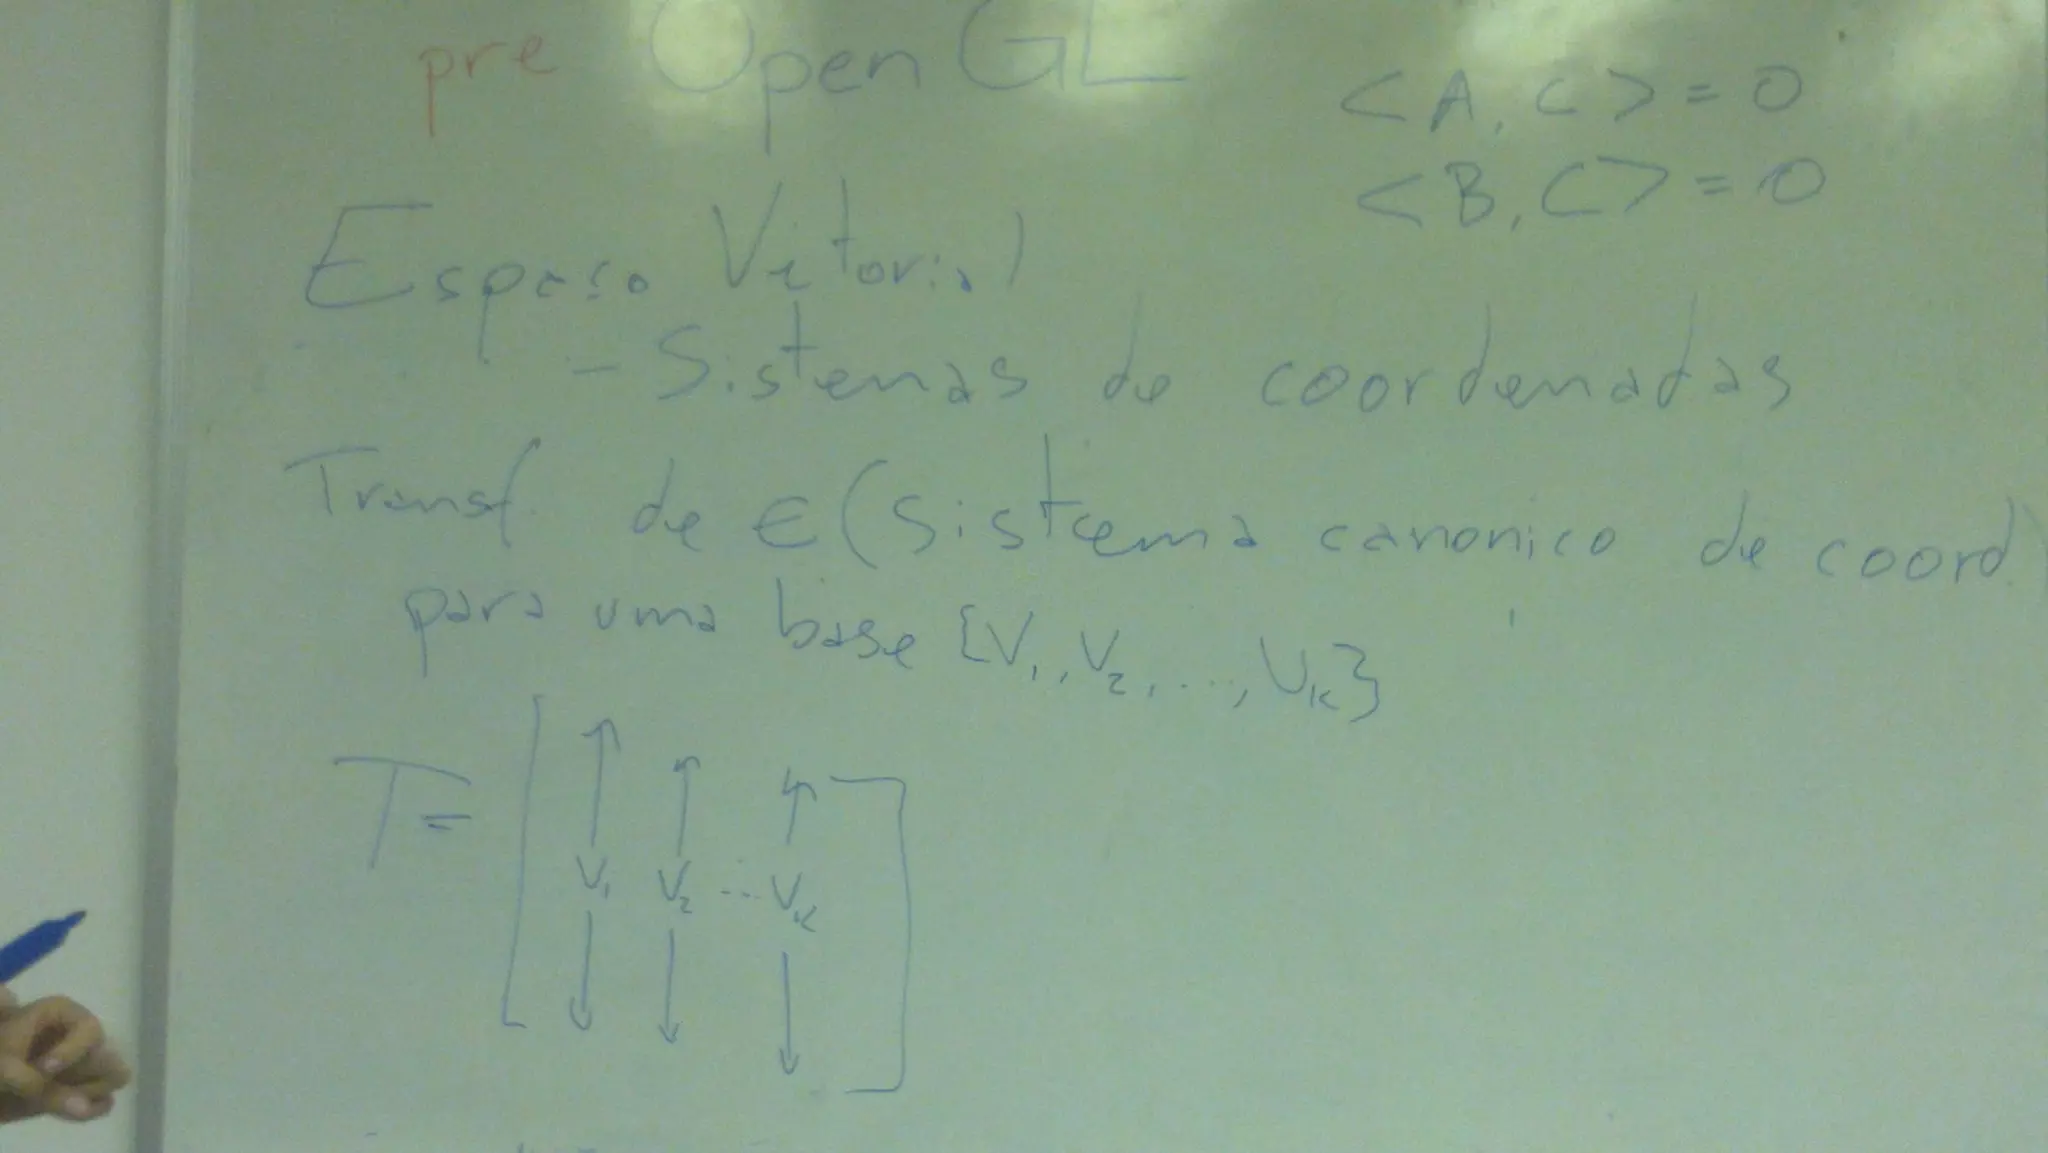 pre OpenGL
<A, C> = 0
<B, C> = 0
Espaço Vetorial
- Sistemas de coordenadas
Transf. de ∈ (Sistema canonico de coord)
para uma base {V₁, V₂, ..., Vₖ}
T = [V₁ V₂ ... Vₖ]